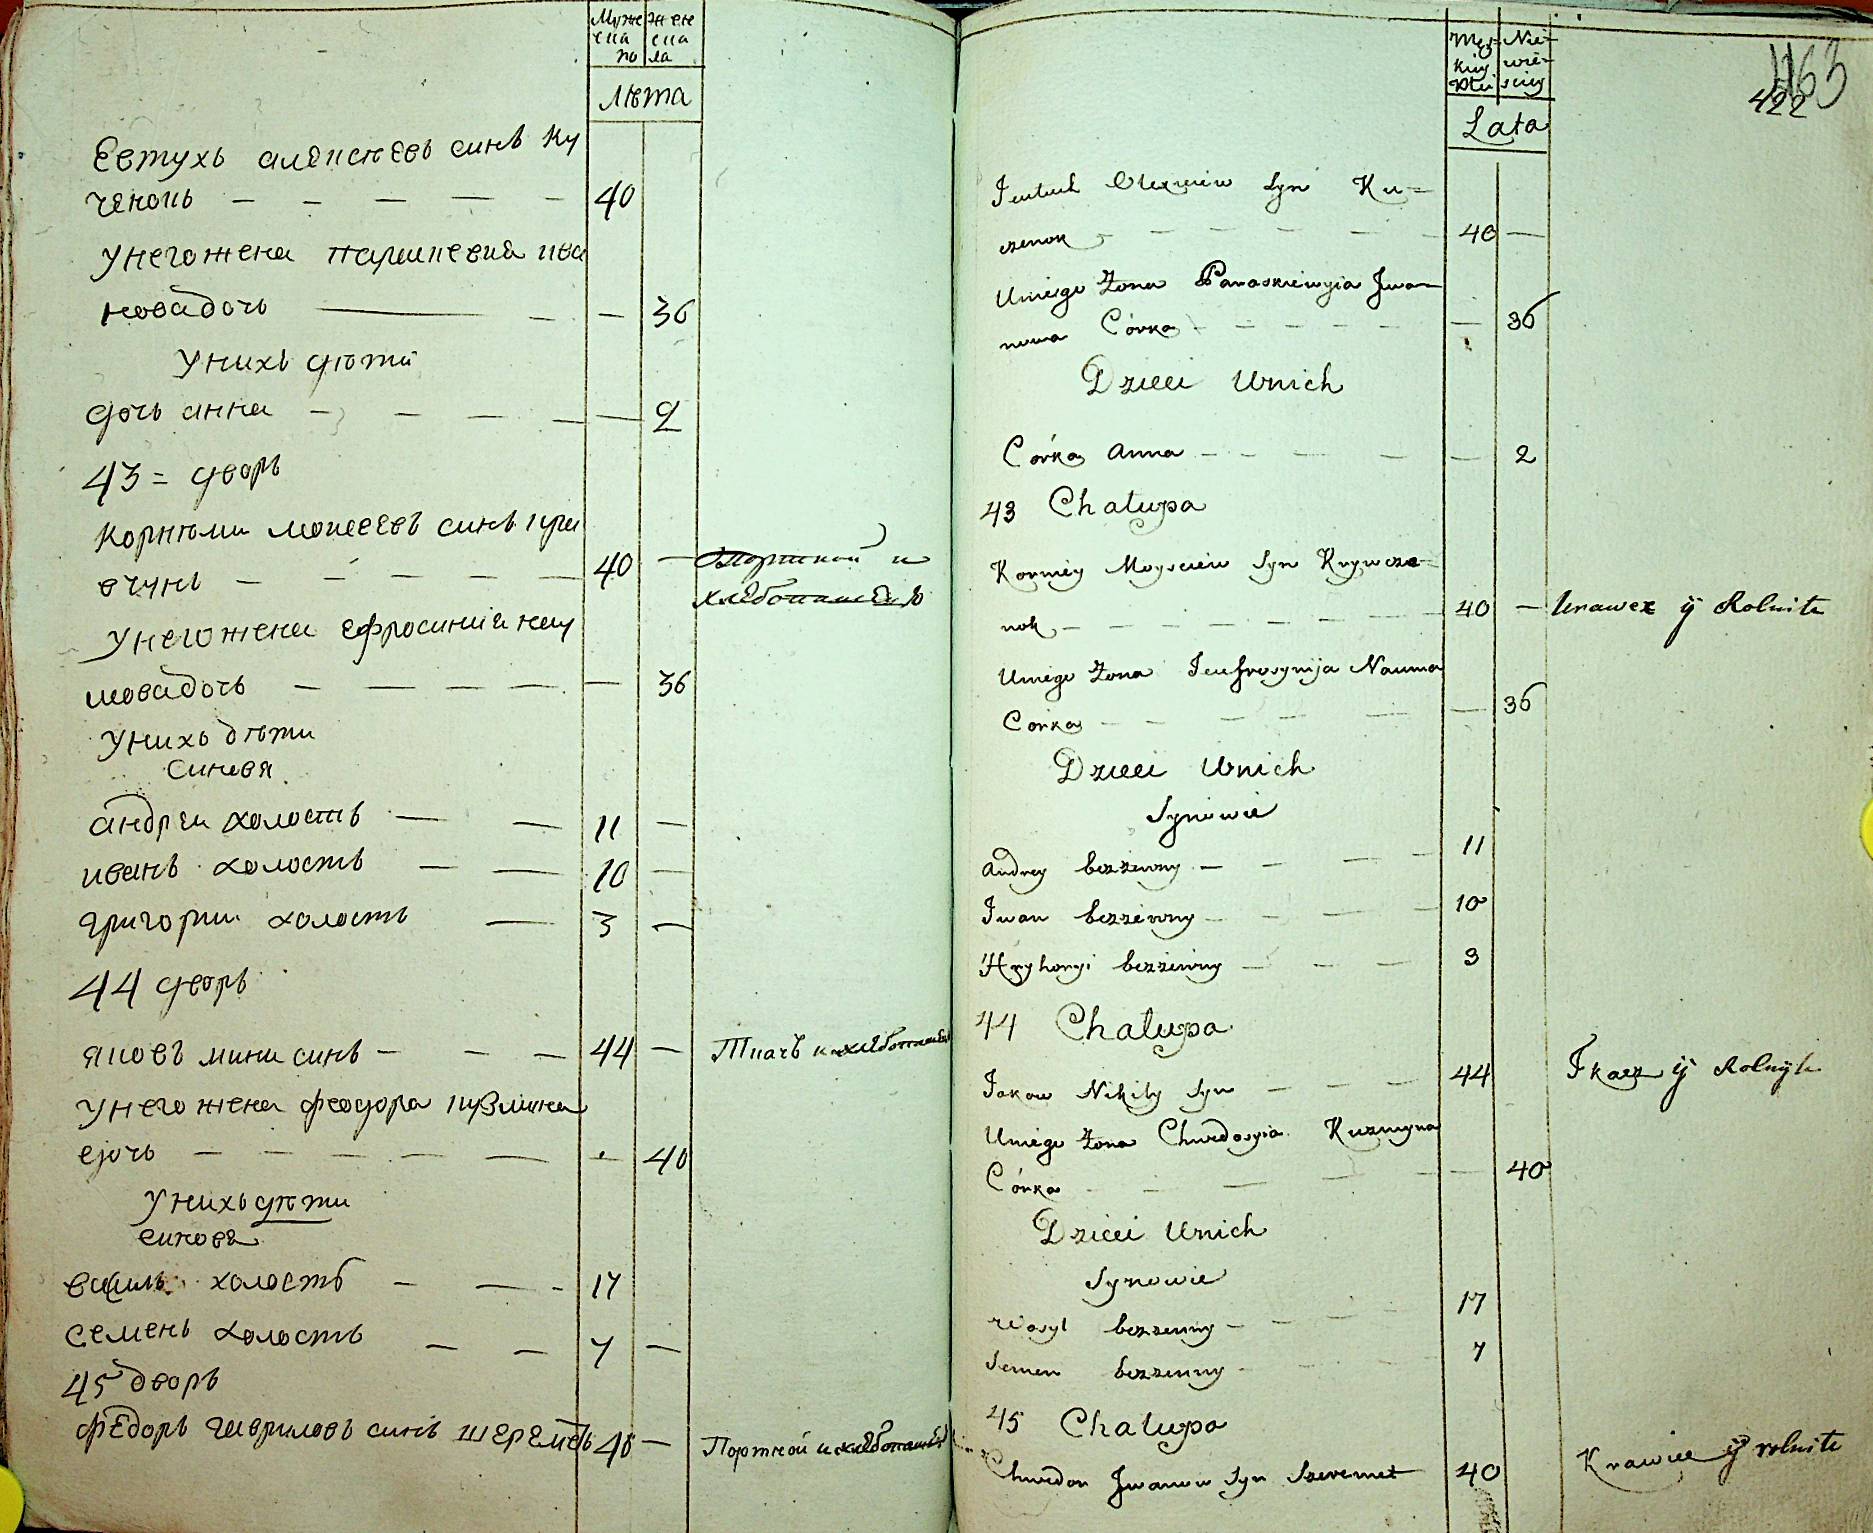 Муже Жен
ска ска
по ла
Лѣта
Евтухъ алексѣевъ синъ ку
ченокъ — — — — — 40
унего жена параскевия ива
нова дочь — — — 36
унихъ дѣти
дочь анна — — — — — 2
43 = дворъ
Корнѣи моисеевъ синъ кри
вчунъ — — — — — 40 — Портной и
хлѣбопашецъ
унего жена ефросиния нау
мова дочь — — — — — 36
унихъ дѣти
синовя
андрей холостъ — — 11 —
иванъ холостъ — — 10 —
григории холостъ — 3 —
44 дворъ
яковъ мики синъ — — — 44 — Ткачъ и хлѣбопашец
унего жена феодора кузмина
дочь — — — — — 40
унихъ дѣти
синовя
василь холостъ — — - 17
семенъ холостъ — — 7 —
45 дворъ
Федоръ гавриловъ синъ шереметъ 40 — Портной и хлѣбопашец
Męz- Nie-
kiey wie-
Płci sciey
Lata
463
422
Jeutuch Olexieiew Syn Ku-
czenok — — — — — 40 —
Uniego Żona Paraskiewyia Jwa-
nowa Córka — — — — — 36
Dzieci Unich
Córka Anna — — — — — 2
43 Chalupa
Korniey Moysieiew Syn Krywcze-
nok — — — — — 40 — Krawcz ÿ Rolnik
Uniego Żona Jeufrosynija Nauma
Corka — — — — — 36
Dzieci Unich
Synowie
Andrey bezżenny — — — 11
Jwan bezżenny — — — 10
Hryhoryi bezżenny — — — 3
44 Chalupa
Jakow Nikity Syn — — — 44 Tkacz ÿ Rolnyk
Uniego Żona Chwedosyia Kuzmyna
Córka — — — — 40
Dzieci Unich
Synowie
Wasyl bezzenny — — — 17
Semen bezzenny — — 7
45 Chalupa
Chwedor Jwanow Syn Szeremet 40 Krawiec ÿ rolnik